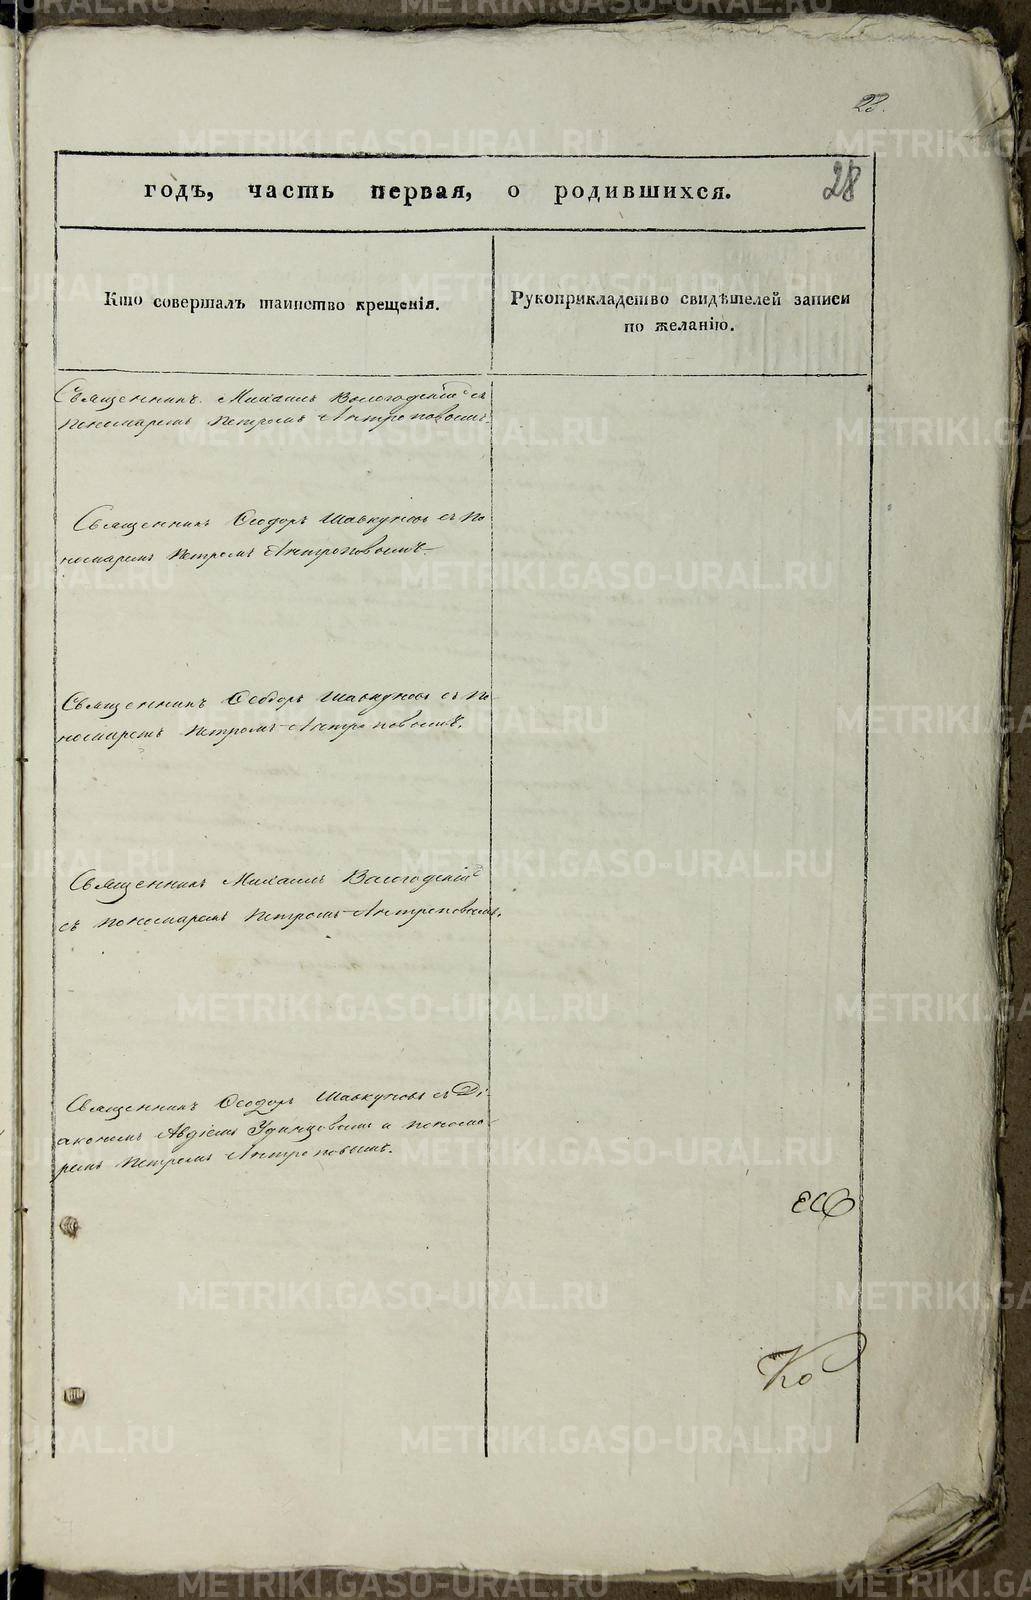 28.
годъ, часть первая, о родившихся.
28
Кто совершалъ таинство крещенія.
Рукоприкладство свидѣтелей записи
по желанію.
Священникъ Михаилъ Вологодскій съ
пономаремъ Петромъ Антроповымъ.
Священникъ Ѳеодоръ Шавкуновъ съ по
номаремъ Петромъ Антроповымъ
Священникъ Ѳеодоръ Шавкуновъ съ по
номаремъ Петромъ Антроповымъ.
Священникъ Михаилъ Вологодскій
съ пономаремъ Петромъ Антроповымъ.
Священникъ Ѳеодоръ Шавкуновъ съ Ді-
акономъ Авдіемъ Удинцовымъ и понома-
ремъ Петромъ Антроповымъ.
Ко
METRIKI.GASO-URAL.RU